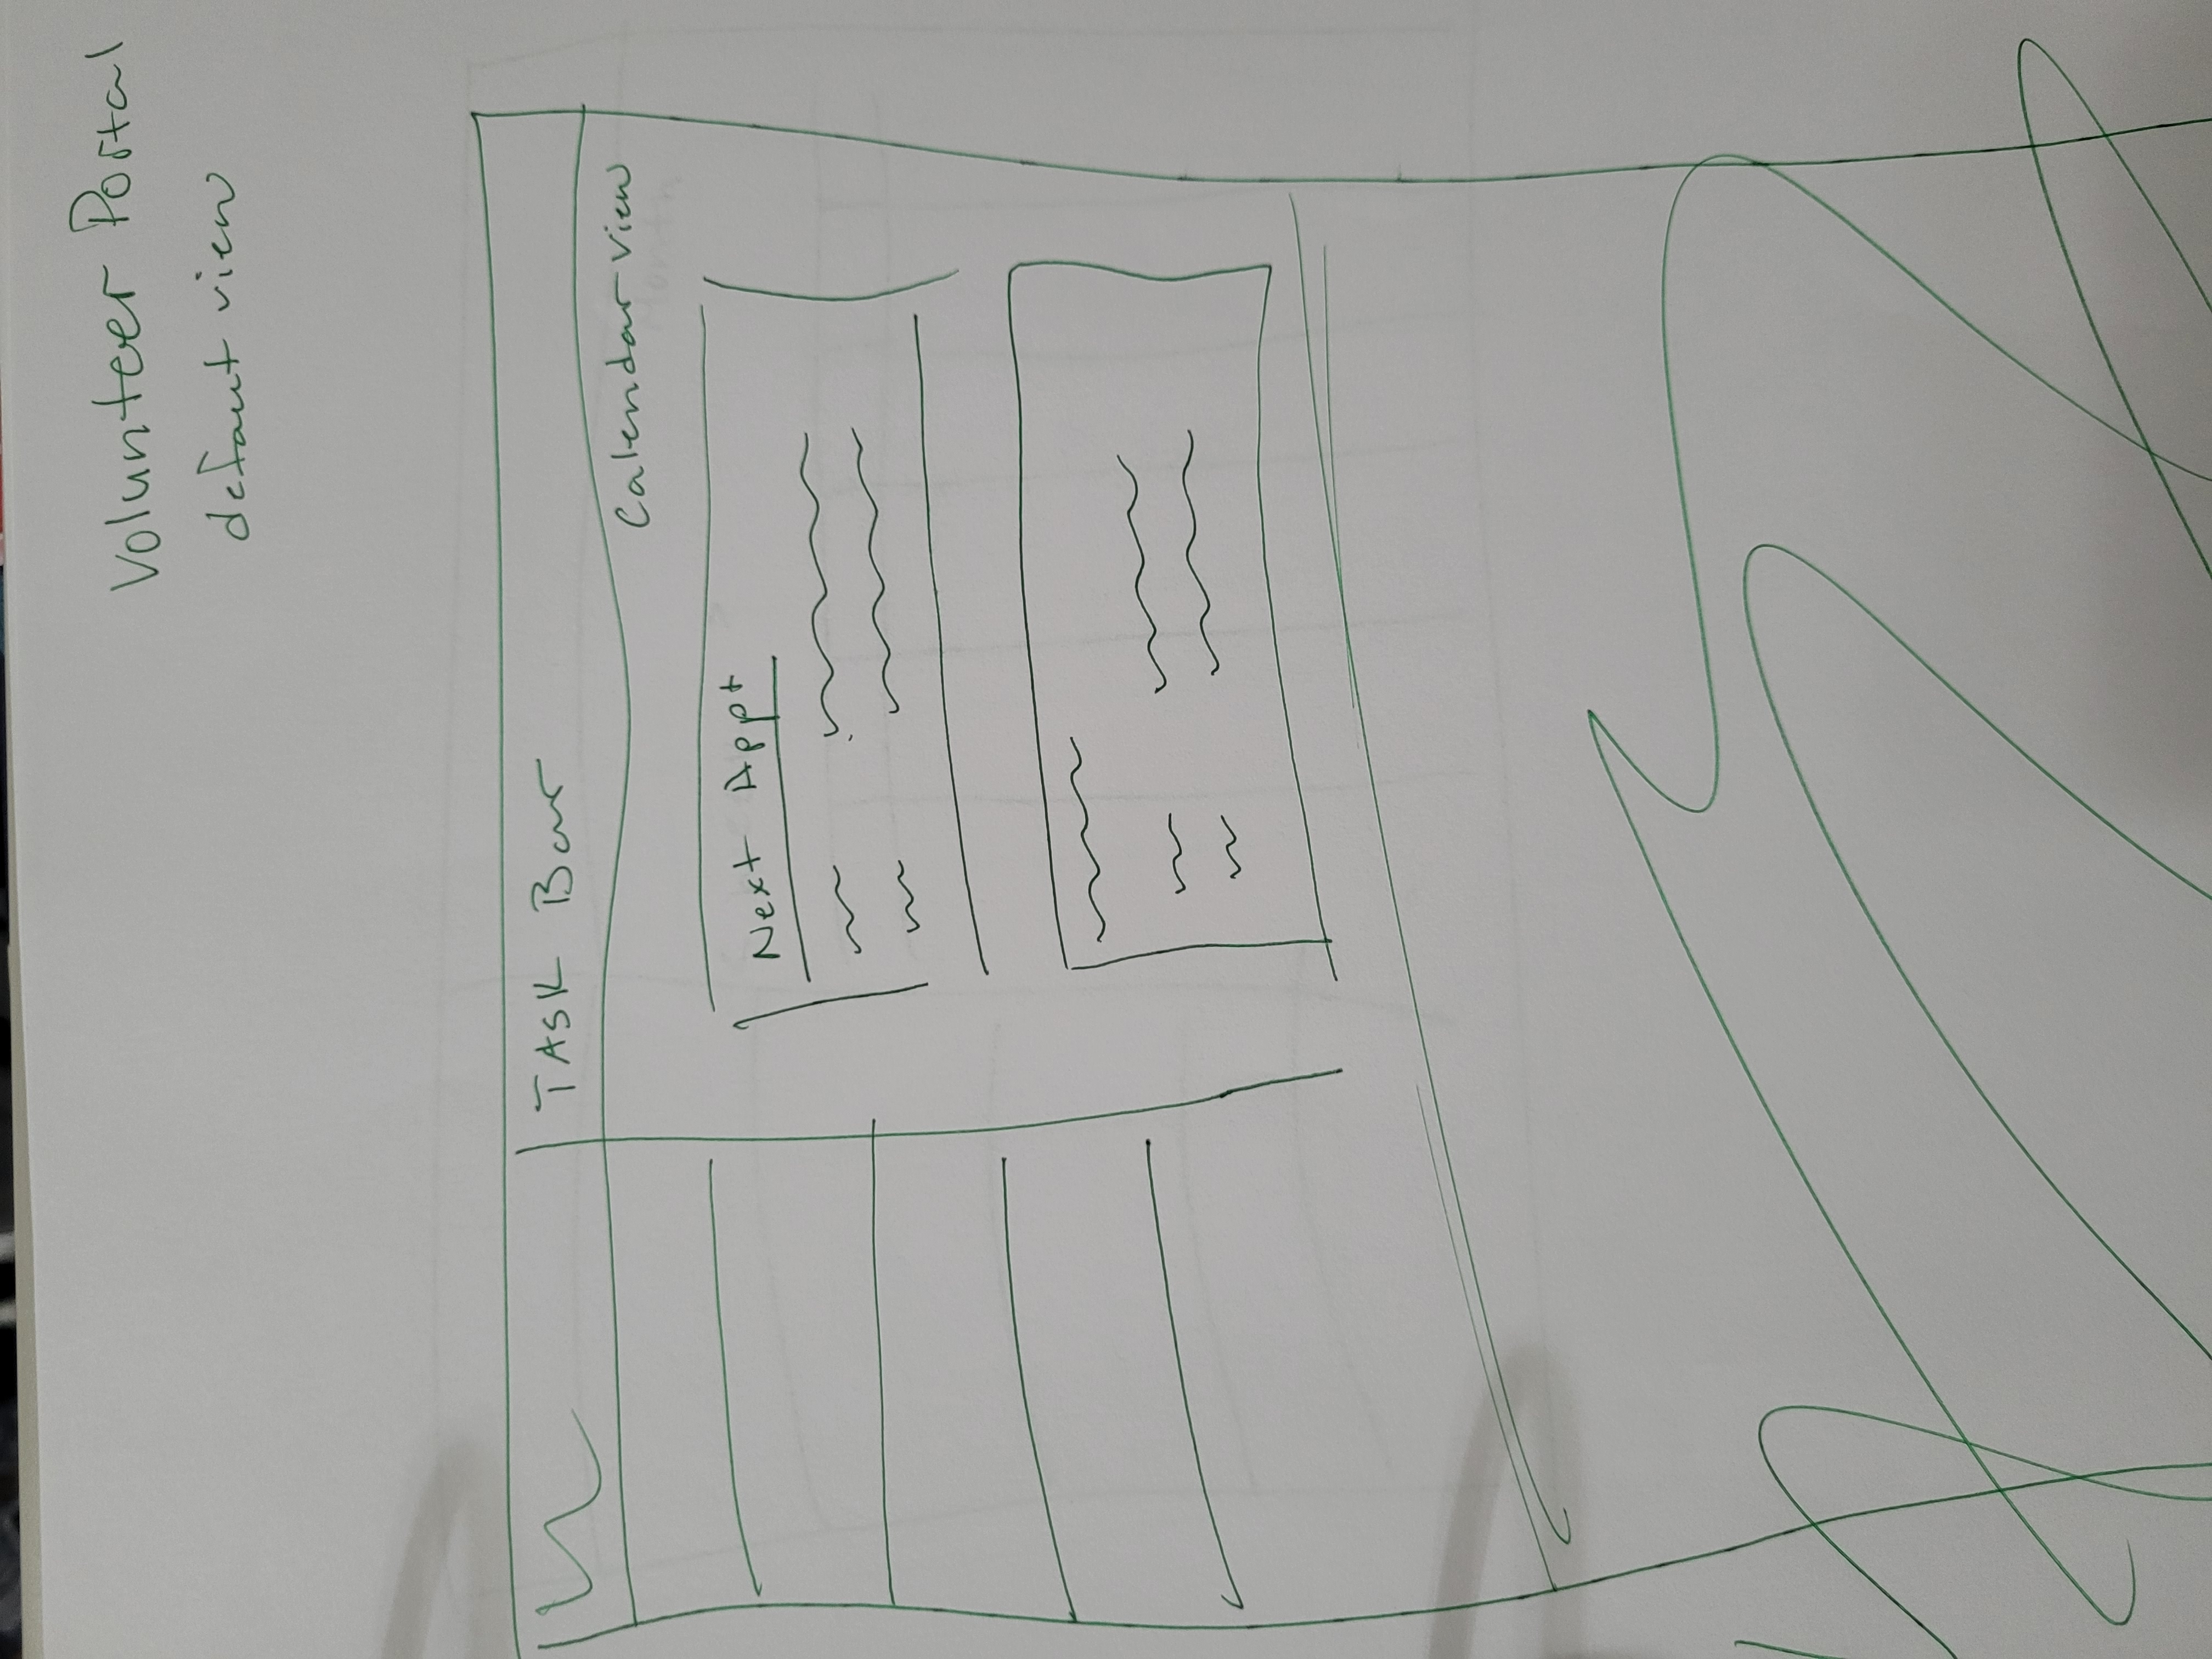 Volunteer Portal
defaut view
TASK Bar
Calendar View
Next Appt